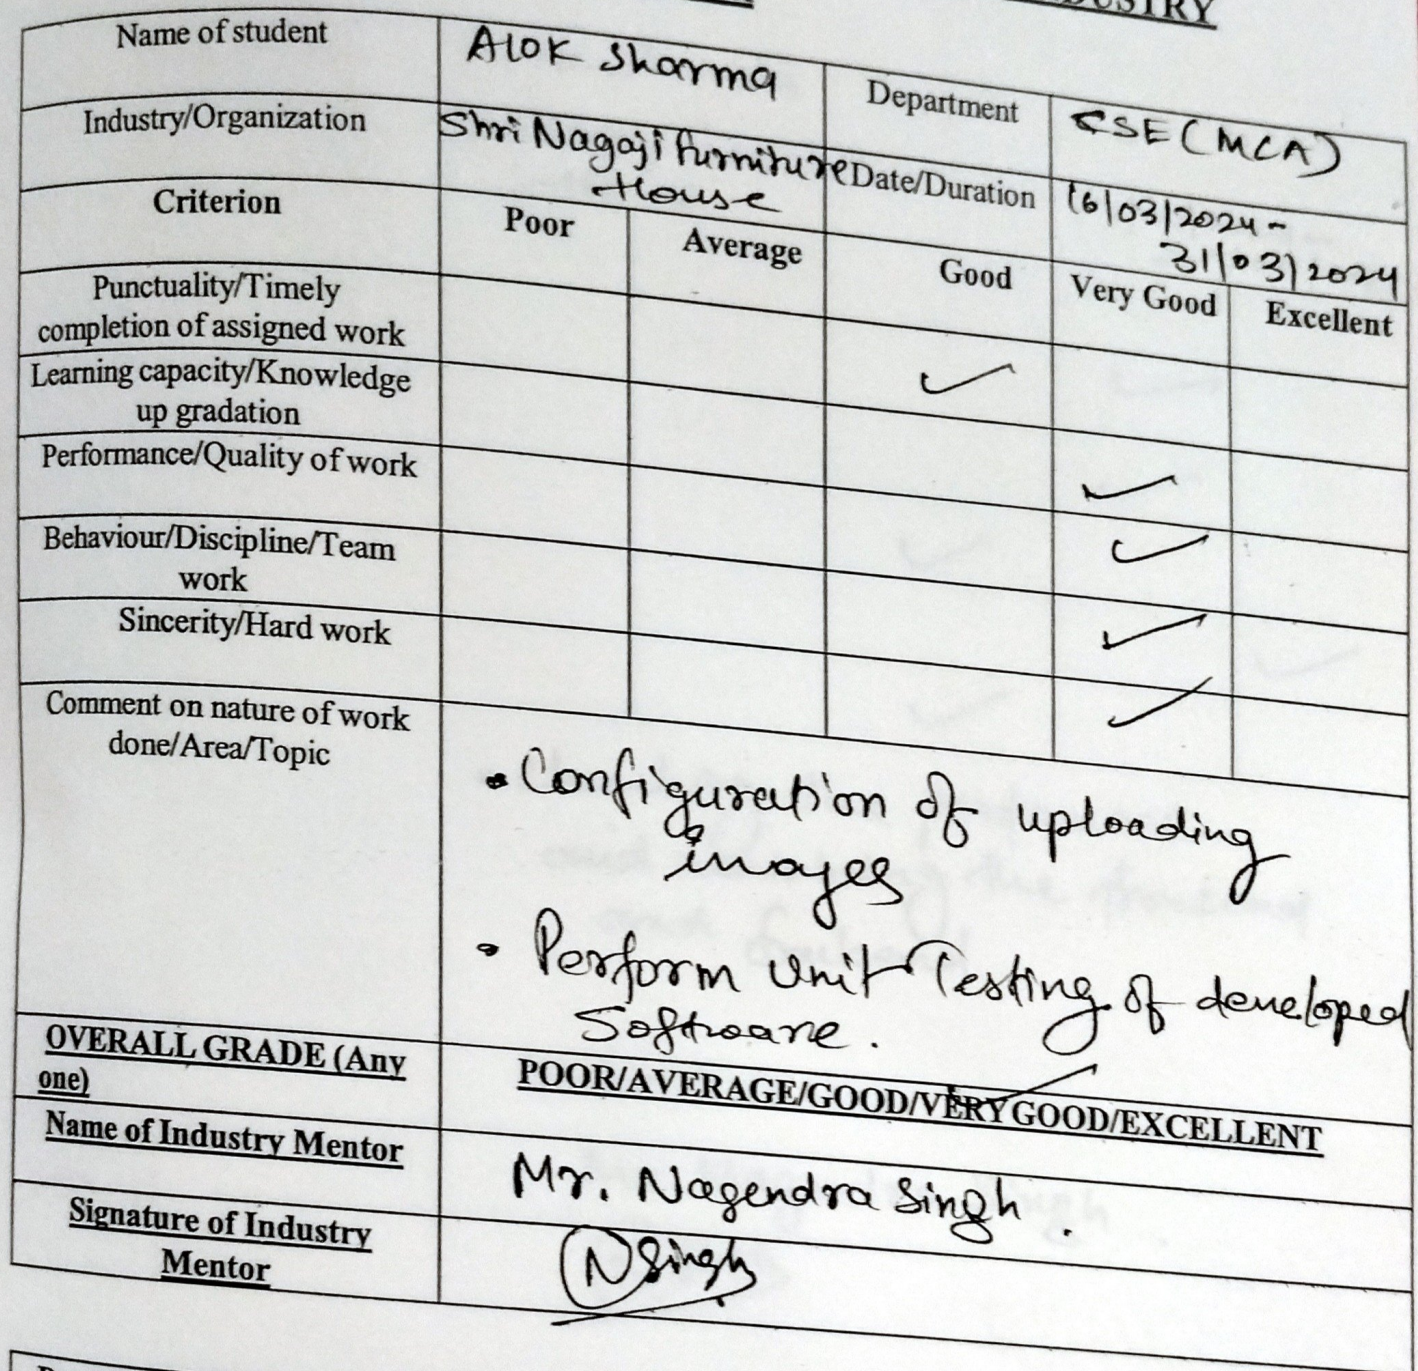 Name of student Alok Sharma Department CSE (MCA)
Industry/Organization Shri Nagaji furniture House Date/Duration 16/03/2024 - 31/03/2024
Criterion Poor Average Good Very Good Excellent
Punctuality/Timely
completion of assigned work ✓
Learning capacity/Knowledge
up gradation ✓
Performance/Quality of work ✓
Behaviour/Discipline/Team
work ✓
Sincerity/Hard work ✓
Comment on nature of work
done/Area/Topic
• Configuration of uploading
images
• Perform Unit Testing of developed
Software.
OVERALL GRADE (Any
one) POOR/AVERAGE/GOOD/VERY GOOD/EXCELLENT
Name of Industry Mentor Mr. Nagendra Singh.
Signature of Industry
Mentor NSingh